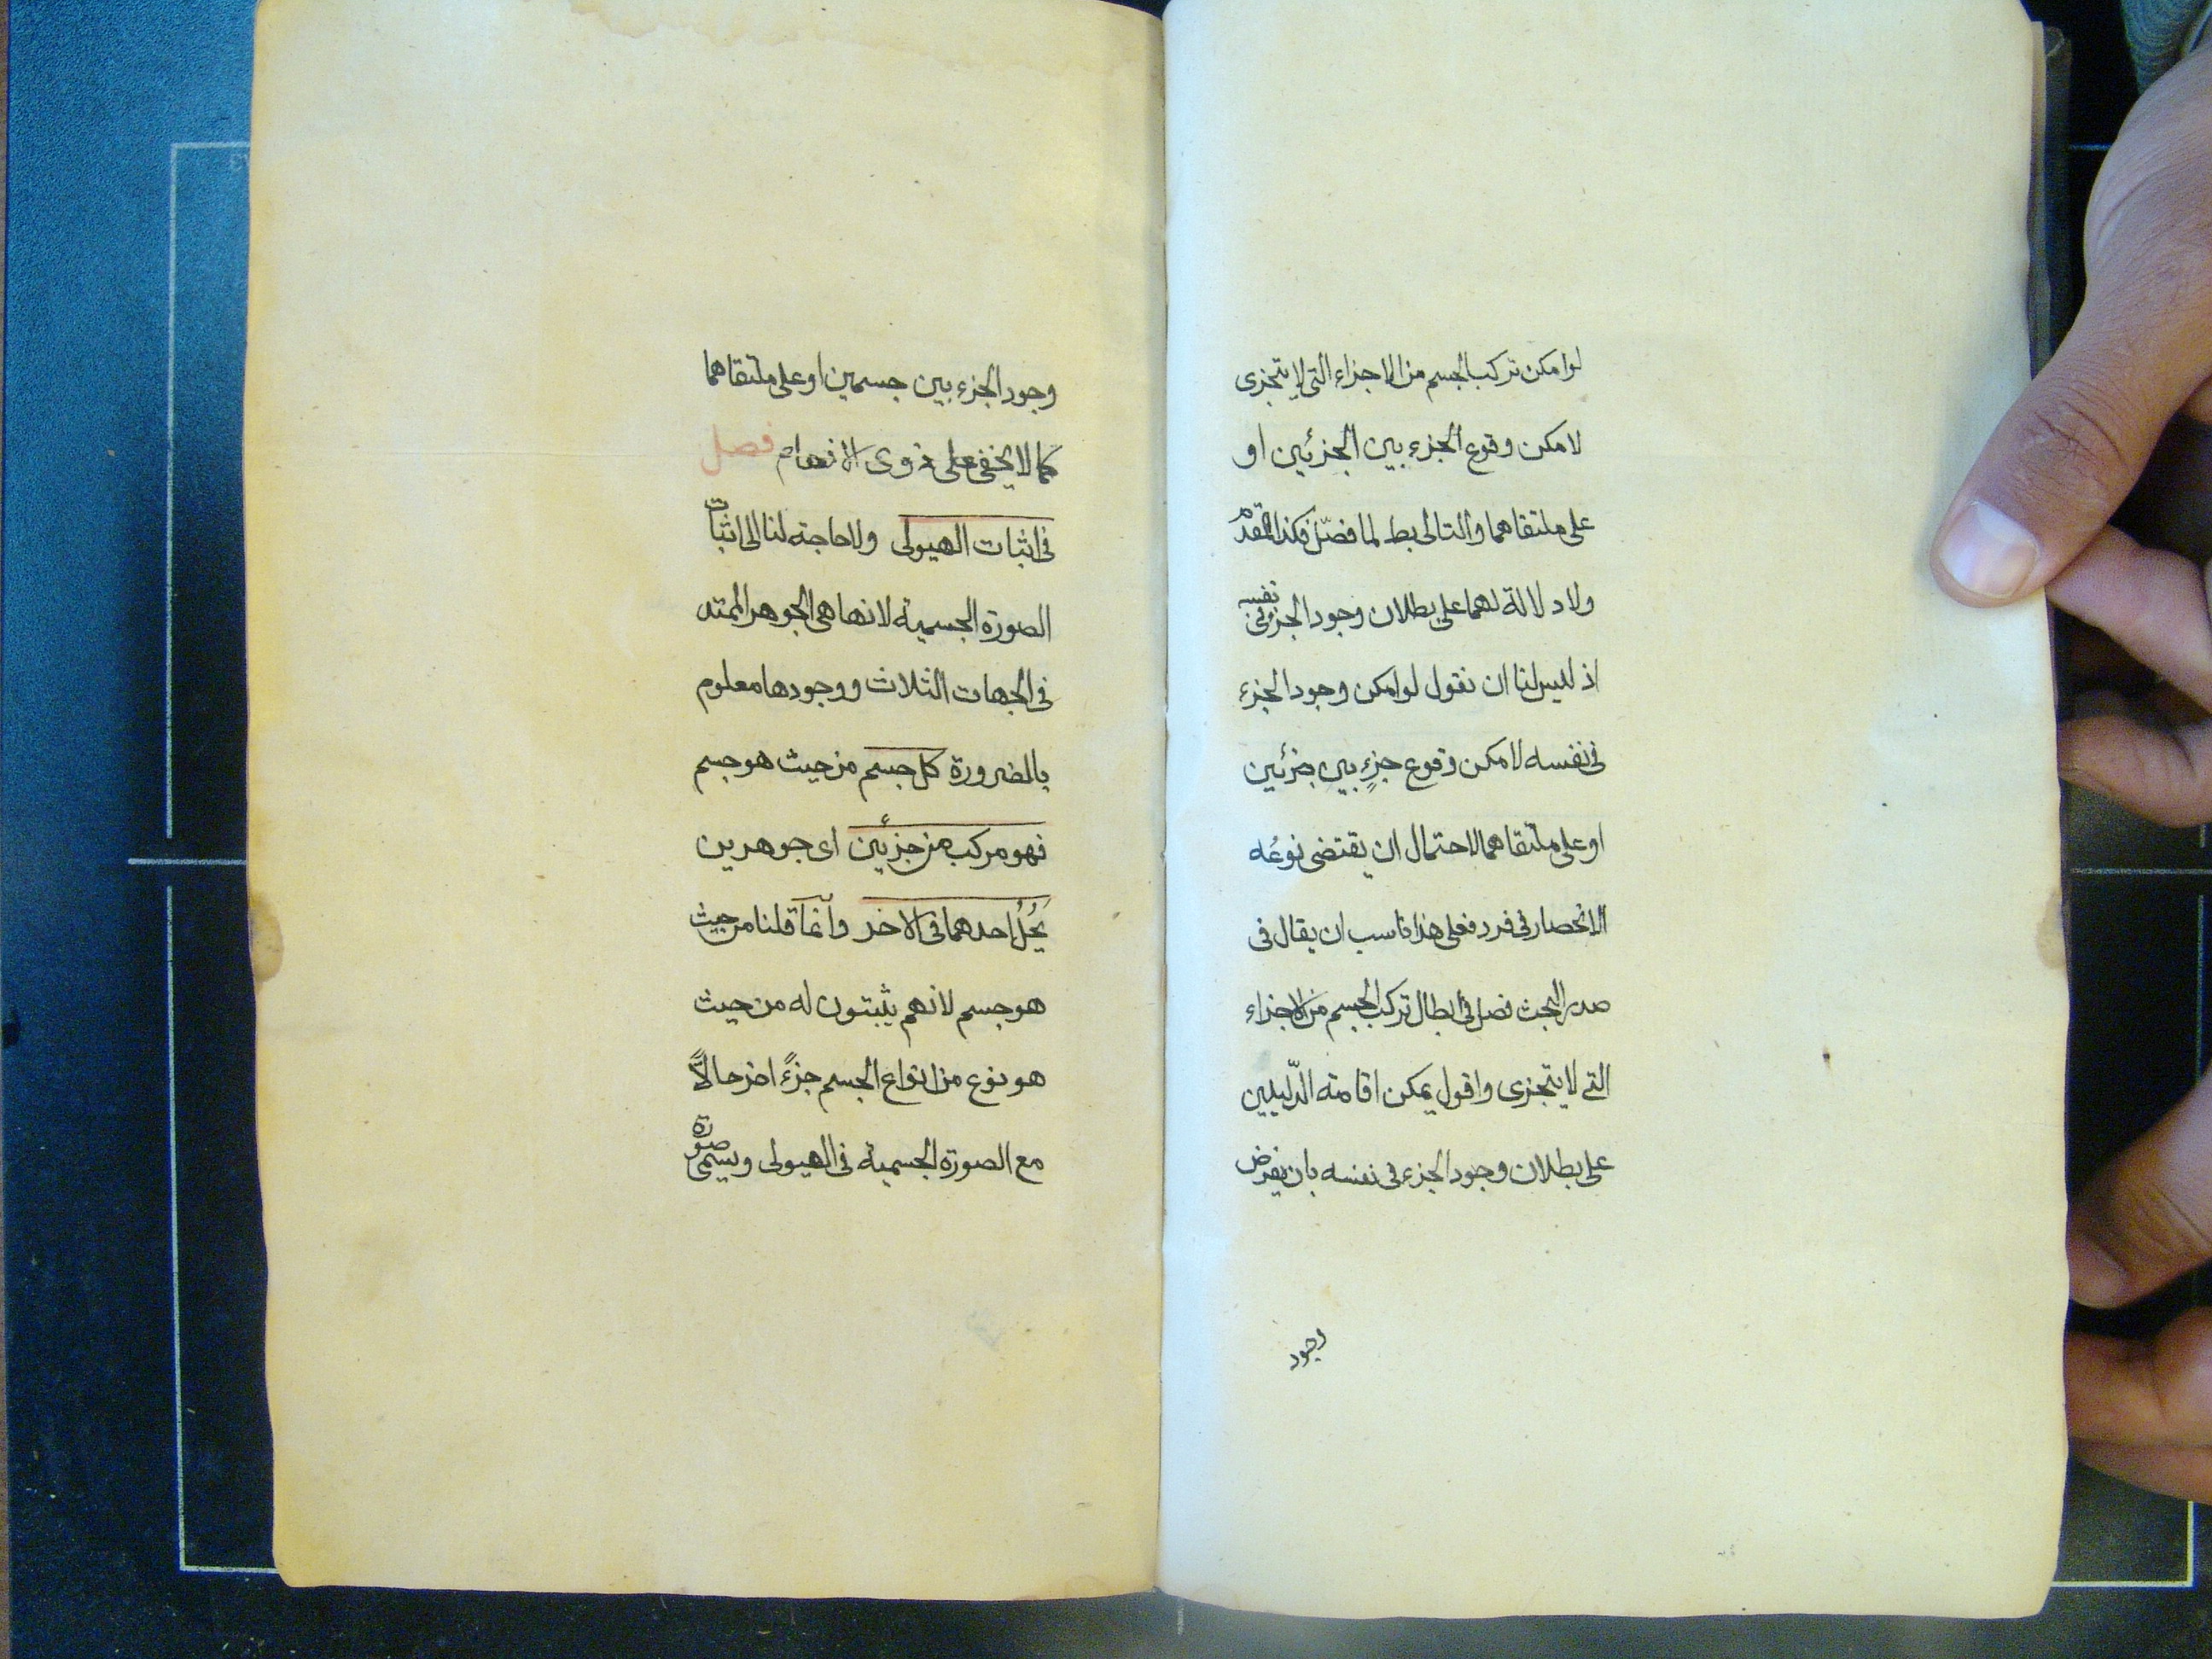 لو امكن تركب الجسم من الاجزاء التى لا يتجزى
لامكن وقوع الجزء بين الجزئين او
على ملتقاهما والتالى بط لما فصّل فكذا المقدم
ولا دلالة لهما على بطلان وجود الجزء فى نفسه
اذ ليس لنا ان نقول لو امكن وجود الجزء
فى نفسه لامكن وقوع جزءٍ بين جزئين
او على ملتقاهما لاحتمال ان يقتضى نوعُه
الانحصار فى فرد فعلى هذا ناسب ان يقال فى
صدر البحث فصل فى ابطال تركب الجسم من الاجزاء
التى لا يتجزى واقول يمكن اقامته الدّليلين
على بطلان وجود الجزء فى نفسه بان يفرض
وجود
وجود الجزء بين جسمين او على ملتقاهما
كما لا يخفى على ذوى الافهام فصل
فى اثبات الهيولى ولا حاجة لنا الى اثبات
الصورة الجسمية لانها هى الجوهر الممتد
فى الجهات الثلاث ووجودها معلوم
بالضرورة كل جسم من حيث هو جسم
فهو مركب من جزئين اى جوهرين
يَحُلُّ احدهما فى الاخر وانما قلنا من حيث
هو جسم لانهم يثبتون له من حيث
هو نوع من انواع الجسم جزءً اخر حالاًّ
مع الصورة الجسمية فى الهيولى ويسمى صورة